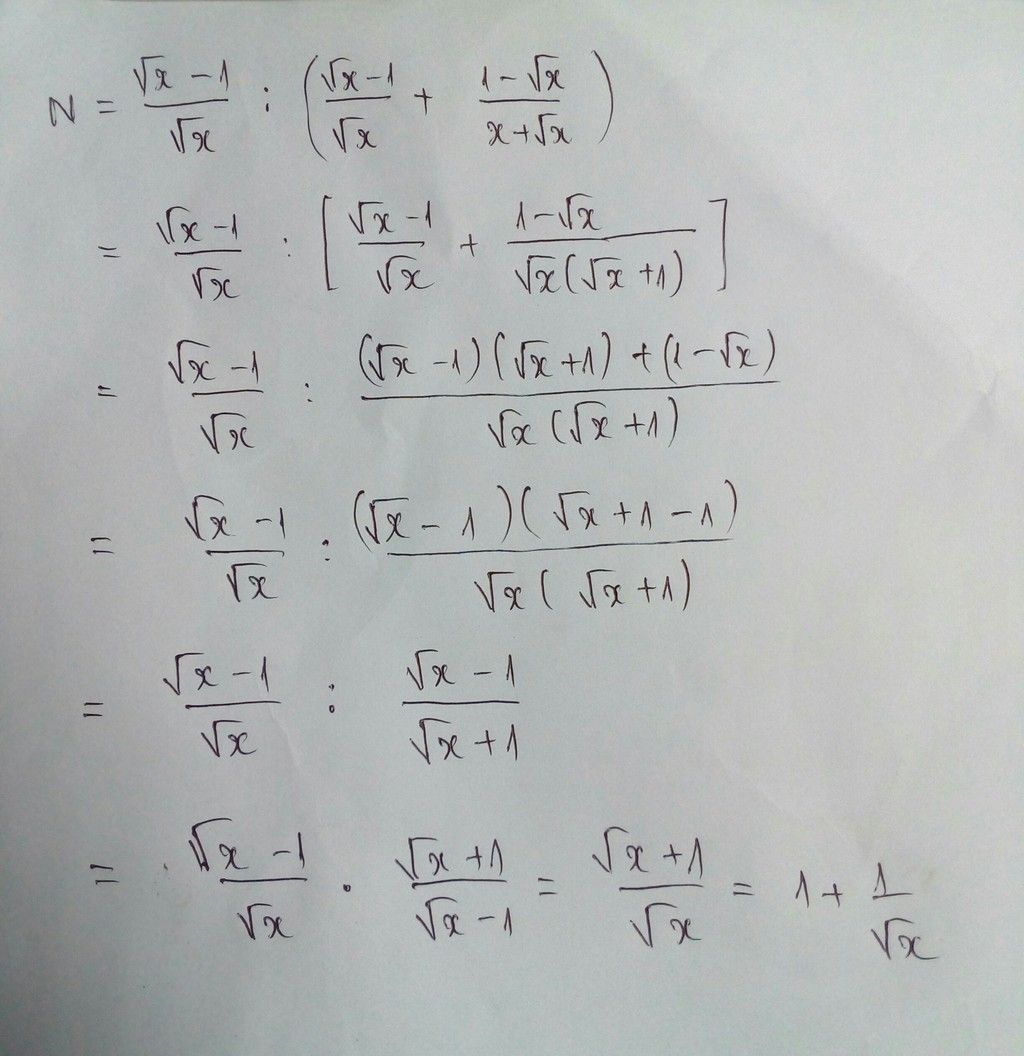 N = \frac{\sqrt{x} - 1}{\sqrt{x}} : \left( \frac{\sqrt{x} - 1}{\sqrt{x}} + \frac{1 - \sqrt{x}}{x + \sqrt{x}} \right)
= \frac{\sqrt{x} - 1}{\sqrt{x}} : \left[ \frac{\sqrt{x} - 1}{\sqrt{x}} + \frac{1 - \sqrt{x}}{\sqrt{x}(\sqrt{x} + 1)} \right]
= \frac{\sqrt{x} - 1}{\sqrt{x}} : \frac{(\sqrt{x} - 1)(\sqrt{x} + 1) + (1 - \sqrt{x})}{\sqrt{x}(\sqrt{x} + 1)}
= \frac{\sqrt{x} - 1}{\sqrt{x}} : \frac{(\sqrt{x} - 1)(\sqrt{x} + 1 - 1)}{\sqrt{x}(\sqrt{x} + 1)}
= \frac{\sqrt{x} - 1}{\sqrt{x}} : \frac{\sqrt{x} - 1}{\sqrt{x} + 1}
= \frac{\sqrt{x} - 1}{\sqrt{x}} . \frac{\sqrt{x} + 1}{\sqrt{x} - 1} = \frac{\sqrt{x} + 1}{\sqrt{x}} = 1 + \frac{1}{\sqrt{x}}